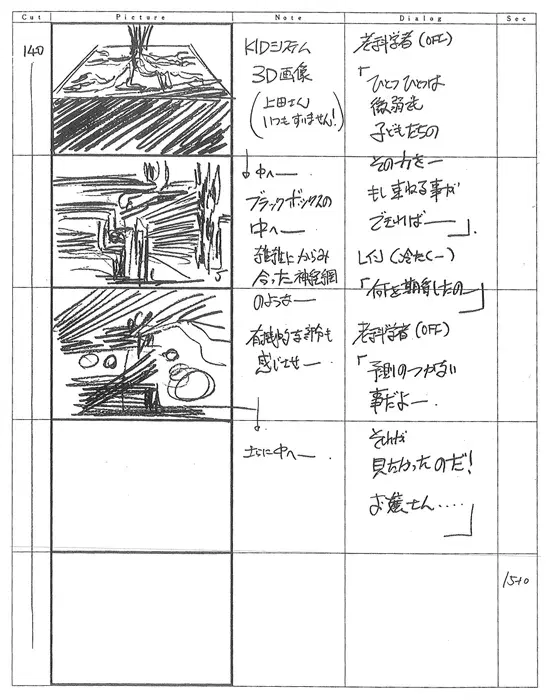 Cut Picture Note Dialog Sec
140
KIDシステム
3D画像
(上田さん
いつもすいません!)
中へ――.
ブラックボックスの
中へ――
複雑にからみ
合った神経網
のような――
有機的な部分も
感じさせ――
さらに中へ――.
老科学者(OFF)
「ひとつひとつは
微弱な
子どもたちの
その力を――
もし束ねる事が
できれば――」.
レイン(冷たく―)
「何を期待したの―」
老科学者(OFF)
「予測のつかない
事だよ―.
それが
見たかったのだ!
お嬢さん‥‥」
15+0